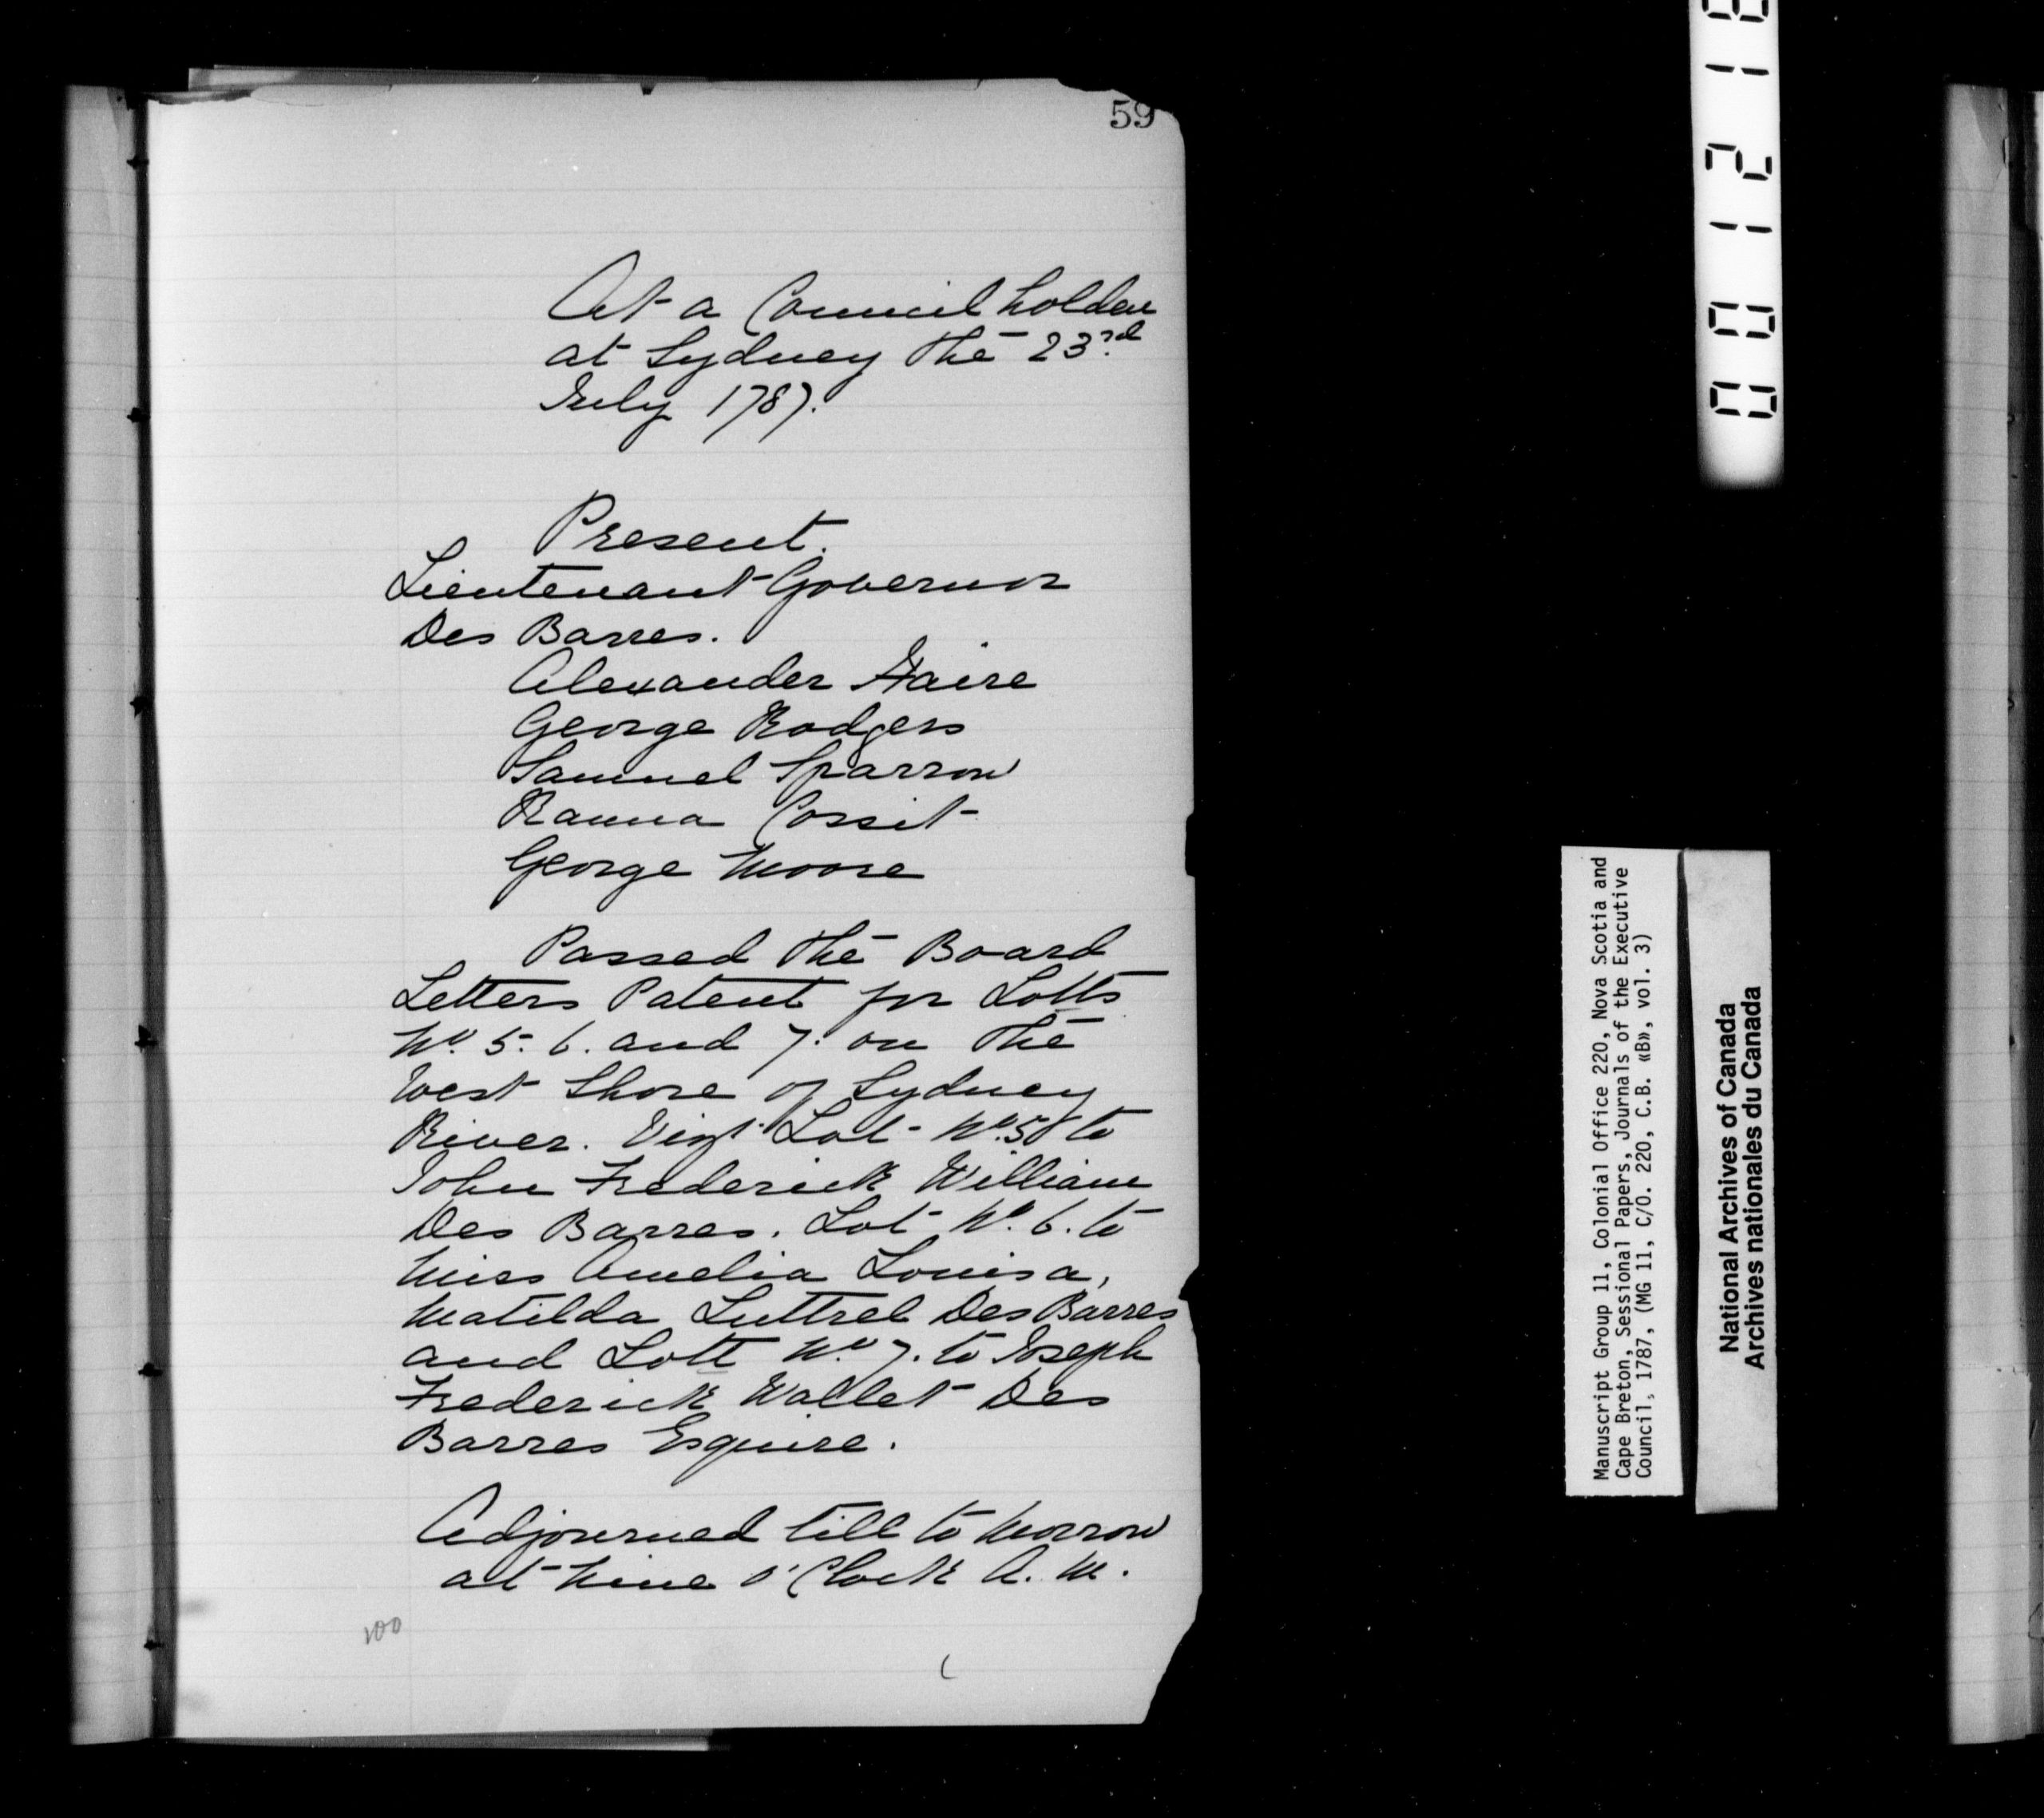 59
At a Council holden
at Sydney the 23rd
July 1787.
Present.
Lieutenant Governor
Des Barres.
Alexander Haire
George Rodgers
Samuel Sparrow
Ranna Cossit
George Moore
Passed the Board
Letters Patent for Lotts
No. 5. 6. and 7. on the
West Shore of Sydney
River. Vizt. Lot No. 5 to
John Frederick William
Des Barres. Lot No. 6. to
Miss Amelia Louisa,
Matilda Luttrel Des Barres
and Lott No. 7. to Joseph
Frederick Wallet Des
Barres Esquire.
Adjourned till to Morrow
at Nine o'Clock A. M.
100
Manuscript Group 11, Colonial Office 220, Nova Scotia and
Cape Breton, Sessional Papers, Journals of the Executive
Council, 1787, (MG 11, C/O. 220, C.B. «B», vol. 3)
National Archives of Canada
Archives nationales du Canada